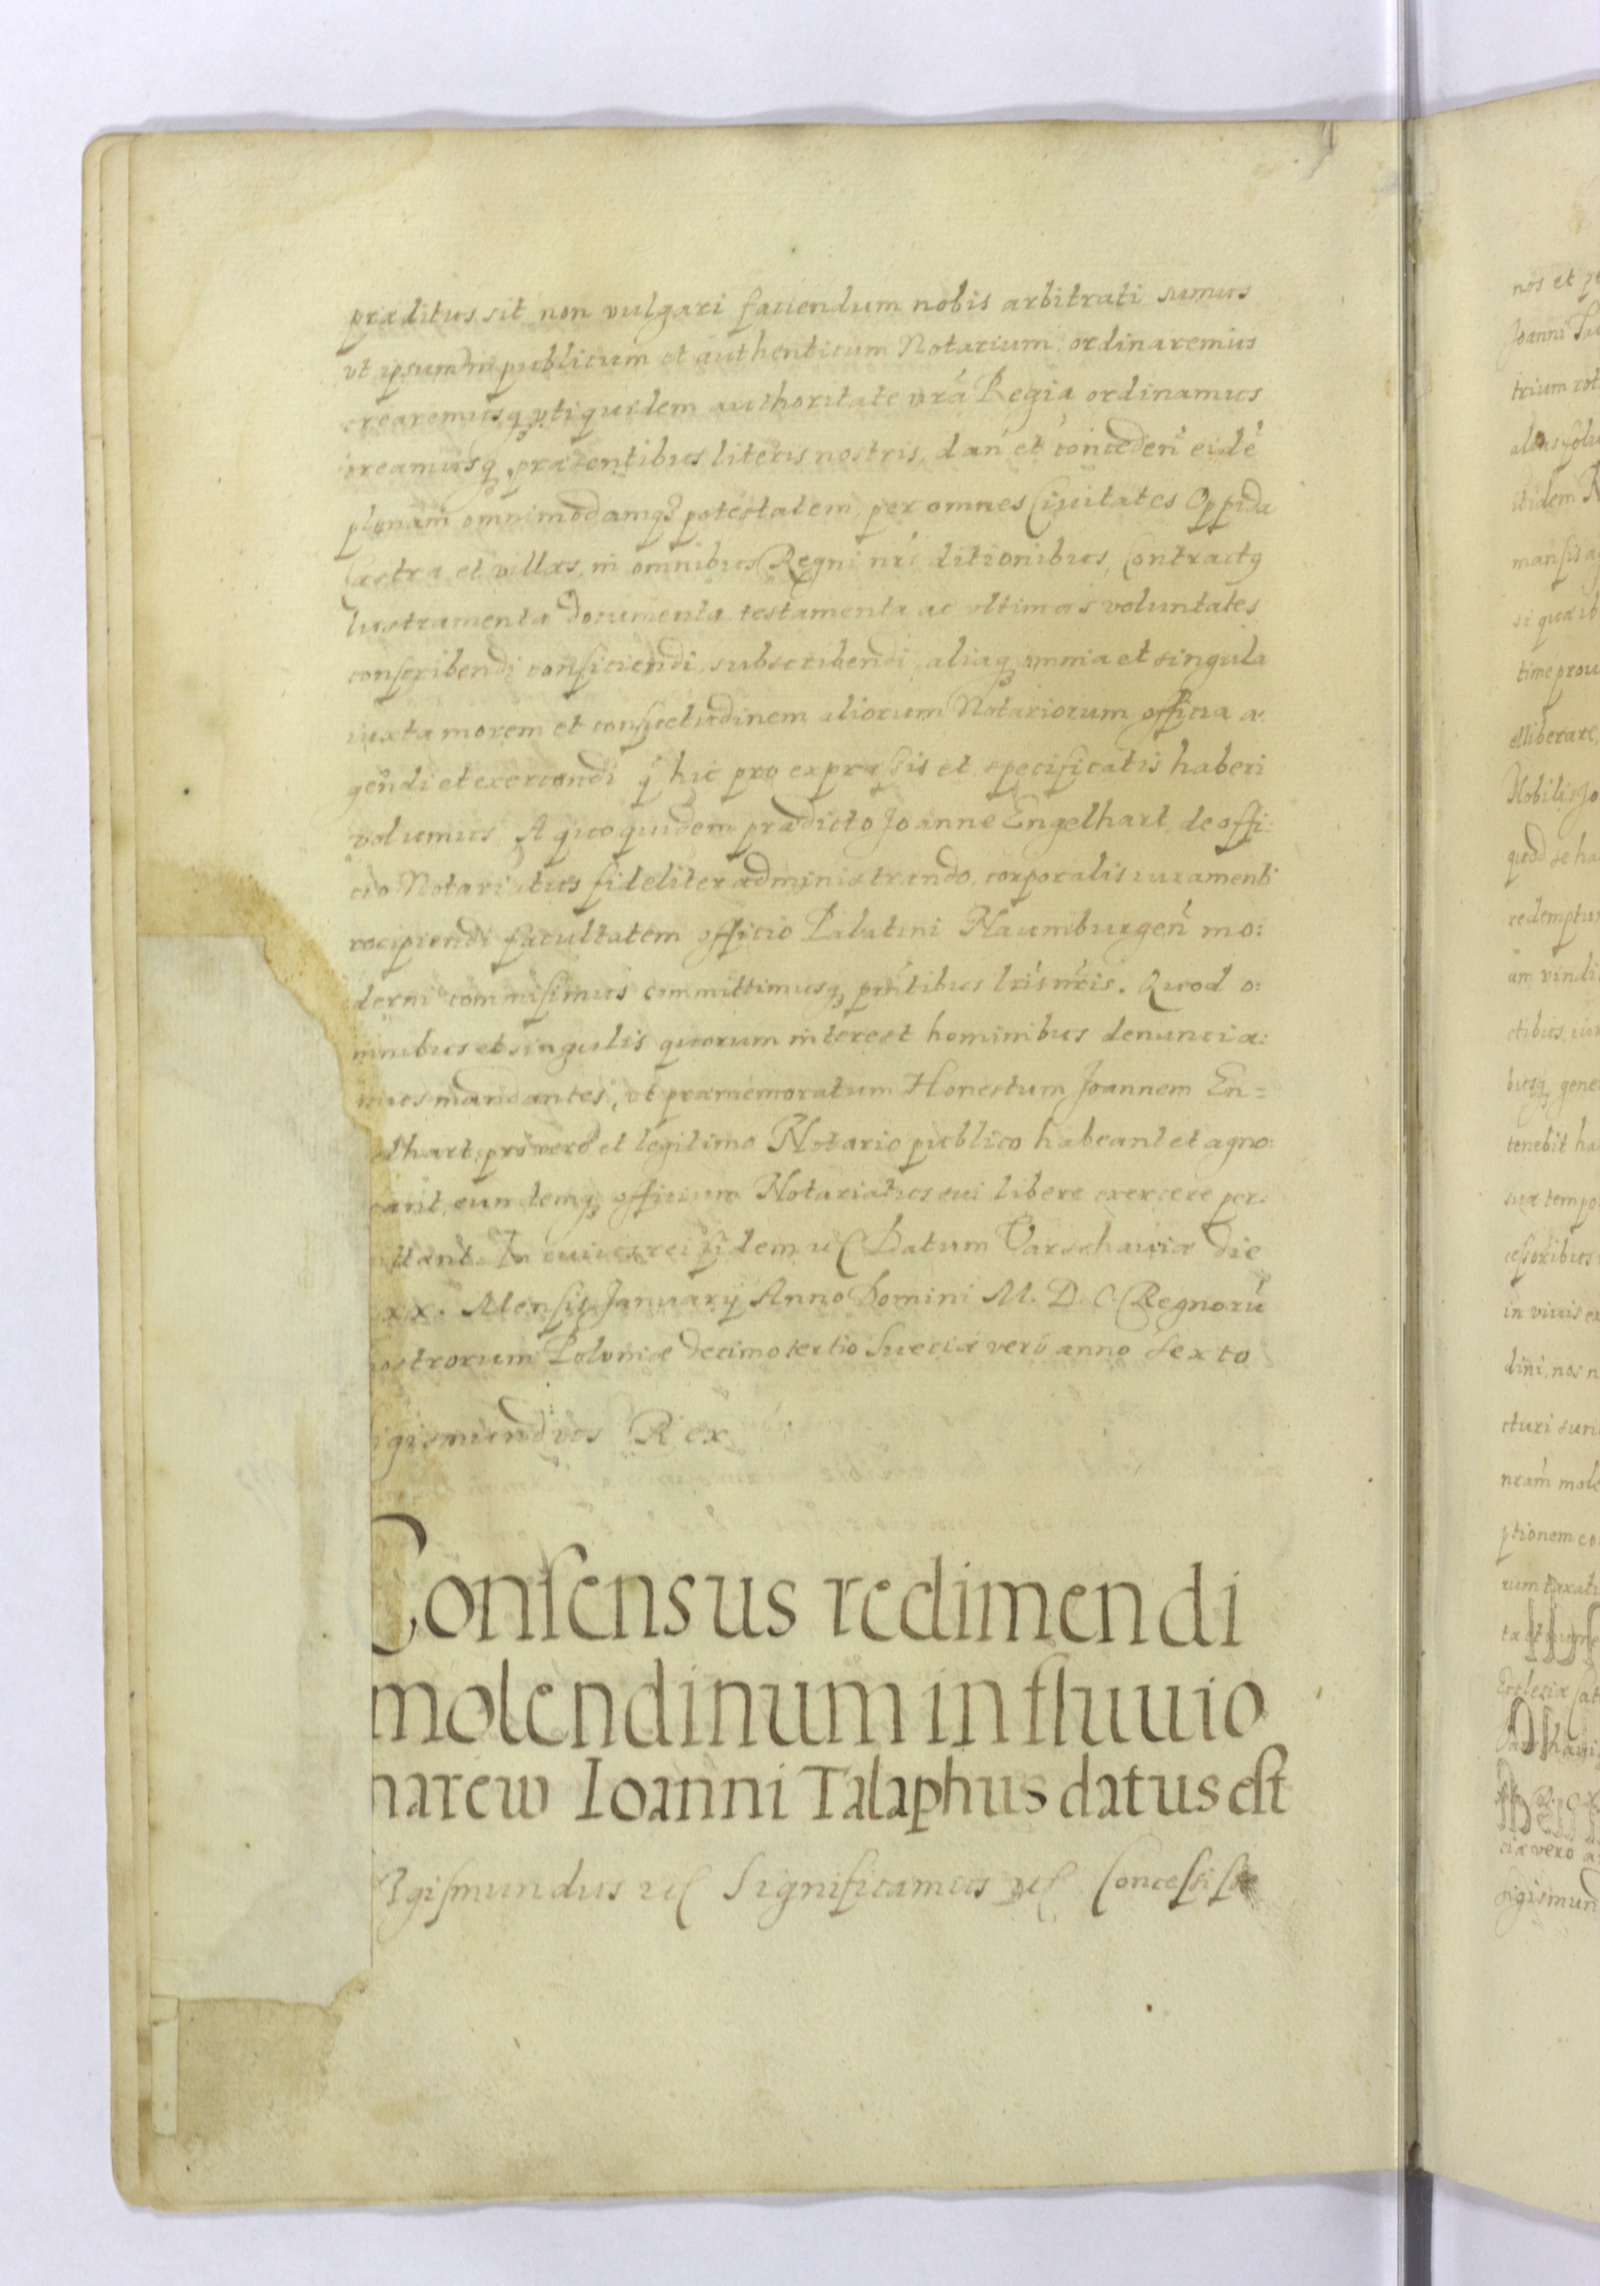 præditus sit non vulgari faciendum nobis arbitrati sumus
vt ipsum in publicum et authenticum Notarium ordinaremus
crearemusq3 vti quidem authoritate nrá Regia ordinamus
creamusq3 præsentibus literis nostris, dań et conceden̄ eidē
plenam omnimodamq3 potestatem, per omnes Ciuitates Oppida
Castra et villas, in omnibus Regni nrí ditionibus, Contractus
Instrumenta documenta testamenta ac vltimas voluntates
conscribendi conficiendi subscribendi, aliaq3 omnia et singula
iuxta morem et consuetudinem aliorum Notariorum officia a
gendi et exercendi q̃ hic pro expressis et specificatis haberi
volumus. A quo quidem prædicto Joanne Engelhart, de offi:
cio Notariatus fideliter administrando, corporalis iuramenti
recipiendi facultatem officio Palatini Naumburgeñ mo:
derni commisimus committimusq3 pnŕtibus lrís nrís. Quod o:
mnibus et singulis quorum interest hominibus denuncia:
mus mandantes, vt præmemoratum Honestum Joannem En=
lhart, pro vero et legitimo Notario publico habeant et agno:
cant, eundemq3 officium Notariatus sui libere exercere per:
ittant. In cuius rei fidem ucͅ Datum Varschauiæ die
xx. Mensis Januarij Anno Domini M. D. C. Regnorū
ostrorum Poloniæ decimotertio Sueciæ vero anno Sexto
igismundus Rex
Consensus redimendi
molendinum in fluuio
narew Ioanni Talaphus datus est
Sigismundus ucͅ Significamus ucͅ Concessisse
nos et
Joanni
trium
itidem
si quod
time prou
elliberare,
Nobilis Jo
quod se ha
redemptu
am vindi
ctibus,
busq3 gene
tenebit ha
suæ tempo
cessoribus
in viuis ex
dini, nos n
cturi
nrám mole
ptionem co
Ecclesiæ
ciæ vero a
Sigismund